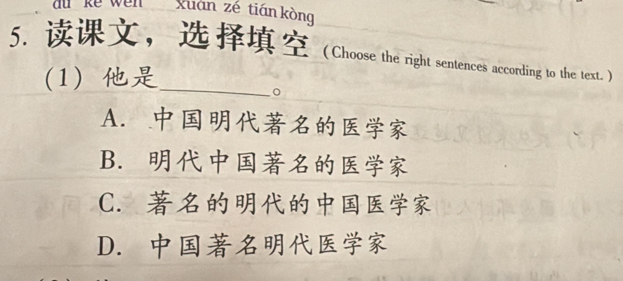 dú kè wén xuǎn zé tián kòng
5. 读课文，选择填空（Choose the right sentences according to the text.）
（1）他是________。
A. 中国明代著名的医学家
B. 明代中国著名的医学家
C. 著名的明代的中国医学家
D. 中国著名明代医学家